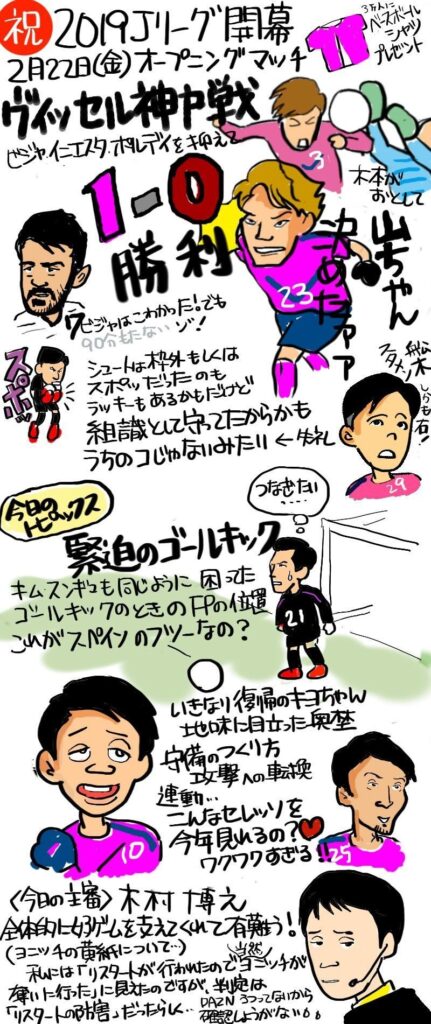 祝 2019Jリーグ開幕
2月22日(金)オープニングマッチ
3万人に
ベースボール
シャツ
プレゼント
ヴィッセル神戸戦
ビジャ、イニエスタ、ポルディを抑えて
3
木本が
おとして
1-0
勝利
山ちゃん
決めたァァァ
23
ビジャはこわかった!でも
90分もたないゾ!
スポッ
シュートは枠外もしくは
スポッだったのも
ラッキーもあるかもだけど
組織として守ってたからかも
うちのコじゃないみたい ←失礼
舩木
スタメン
しかも右!
29
今日の
トピックス
つなぎたい…
緊迫のゴールキック
キム・スンギュも同じように困った
ゴールキックのときのFPの位置
これがスペインのフツーなの?
21
いきなり復帰のキヨちゃん
地味に目立った奥埜
守備のつくり方
攻撃への転換
連動…
こんなセレッソを
今年見れるの?
ワクワクすぎる!!
10
25
〈今日の主審〉木村博之
全体的に好ゲームを支えてくれて有難う!
(ヨニッチの黄紙について…)
私には「リスタートが行われたので当然ヨニッチが
奪いに行った」に見えたのですが、判定は
「リスタートの防害」だったらしく…
DAZNうつってないから
確認しようがない。。